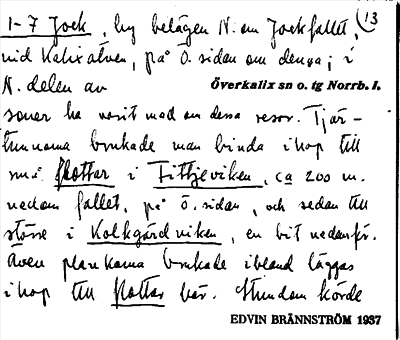 1-7 Jock, by belägen N. om Jockfallet, 13
vid Kalixälven, på Ö. sidan om denna; i
N. delen av Överkalix sn o. tg Norrb. l.
soner ha varit med om dessa resor. Tjär-
tunnorna brukade man binda ihop till
små flottar i Fittjeviken, ca 200 m.
nedom fallet, på Ö. sidan, och sedan till
större i Kolkgårdviken, en bit nedanför.
Även plankorna brukade ibland läggas
ihop till flottar här. Stundom körde
EDVIN BRÄNNSTRÖM 1937